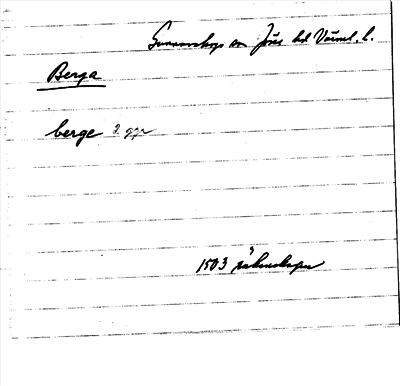 Gunnarskogs sn Jösse hd Värml. l.
Berga
berge 2 ggr
1503 räkenskaper